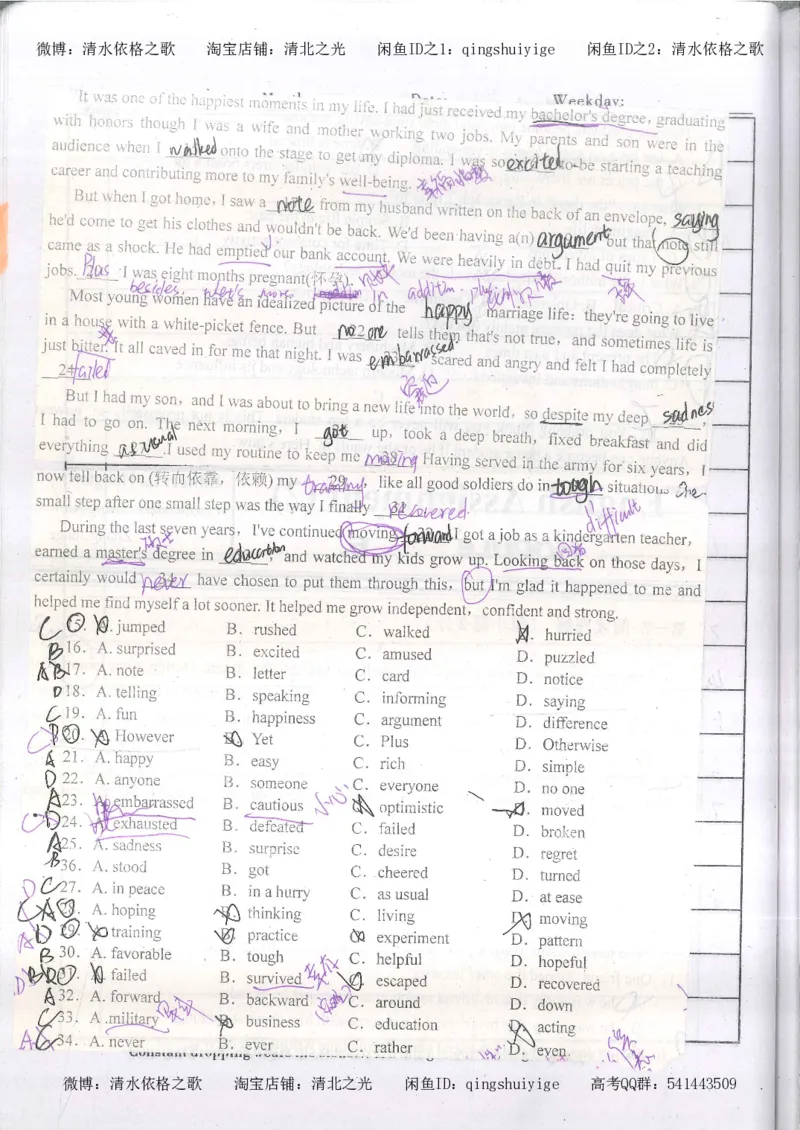 微博：清水依格之歌 淘宝店铺：清北之光 闲鱼ID之1：qingshuiyige 闲鱼ID之2：清水依格之歌
Weekday:
It was one of the happiest moments in my life. I had just received my bachelor's degree, graduating
with honors though I was a wife and mother working two jobs. My parents and son were in the
audience when I walked onto the stage to get my diploma. I was so excited to be starting a teaching
career and contributing more to my family's well-being.
But when I got home, I saw a note from my husband written on the back of an envelope, saying
he'd come to get his clothes and wouldn't be back. We'd been having a(n) argument but that note still
came as a shock. He had emptied our bank account. We were heavily in debt. I had quit my previous
jobs. Plus I was eight months pregnant(怀孕).
besides, what's more, in addition
Most young women have an idealized picture of the happy marriage life: they're going to live
in a house with a white-picket fence. But no one tells them that's not true, and sometimes life is
just bitter. It all caved in for me that night. I was embarrassed scared and angry and felt I had completely
24 failed
But I had my son, and I was about to bring a new life into the world, so despite my deep sadness,
I had to go on. The next morning, I got up, took a deep breath, fixed breakfast and did
everything as usual. I used my routine to keep me moving Having served in the army for six years, I
now tell back on (转而依靠，依赖) my training, like all good soldiers do in tough situation. One
small step after one small step was the way I finally recovered
difficult
During the last seven years, I've continued moving forward I got a job as a kindergarten teacher,
earned a master's degree in education, and watched my kids grow up. Looking back on those days, I
certainly would never have chosen to put them through this, but I'm glad it happened to me and
helped me find myself a lot sooner. It helped me grow independent, confident and strong.
C 15. A. jumped B. rushed C. walked D. hurried
B 16. A. surprised B. excited C. amused D. puzzled
A B 17. A. note B. letter C. card D. notice
D 18. A. telling B. speaking C. informing D. saying
C 19. A. fun B. happiness C. argument D. difference
C B 20. A. However B. Yet C. Plus D. Otherwise
A 21. A. happy B. easy C. rich D. simple
D 22. A. anyone B. someone C. everyone D. no one
A 23. A. embarrassed B. cautious C. optimistic D. moved
C D 24. A. exhausted B. defeated C. failed D. broken
A 25. A. sadness B. surprise C. desire D. regret
B 36. A. stood B. got C. cheered D. turned
D C 27. A. in peace B. in a hurry C. as usual D. at ease
C A 28. A. hoping B. thinking C. living D. moving
A D 29. A. training B. practice C. experiment D. pattern
B 30. A. favorable B. tough C. helpful D. hopeful
D B D 31. A. failed B. survived C. escaped D. recovered
A 32. A. forward B. backward C. around D. down
C 33. A. military B. business C. education D. acting
A C 34. A. never B. ever C. rather D. even
微博：清水依格之歌 淘宝店铺：清北之光 闲鱼ID：qingshuiyige 高考QQ群：541443509